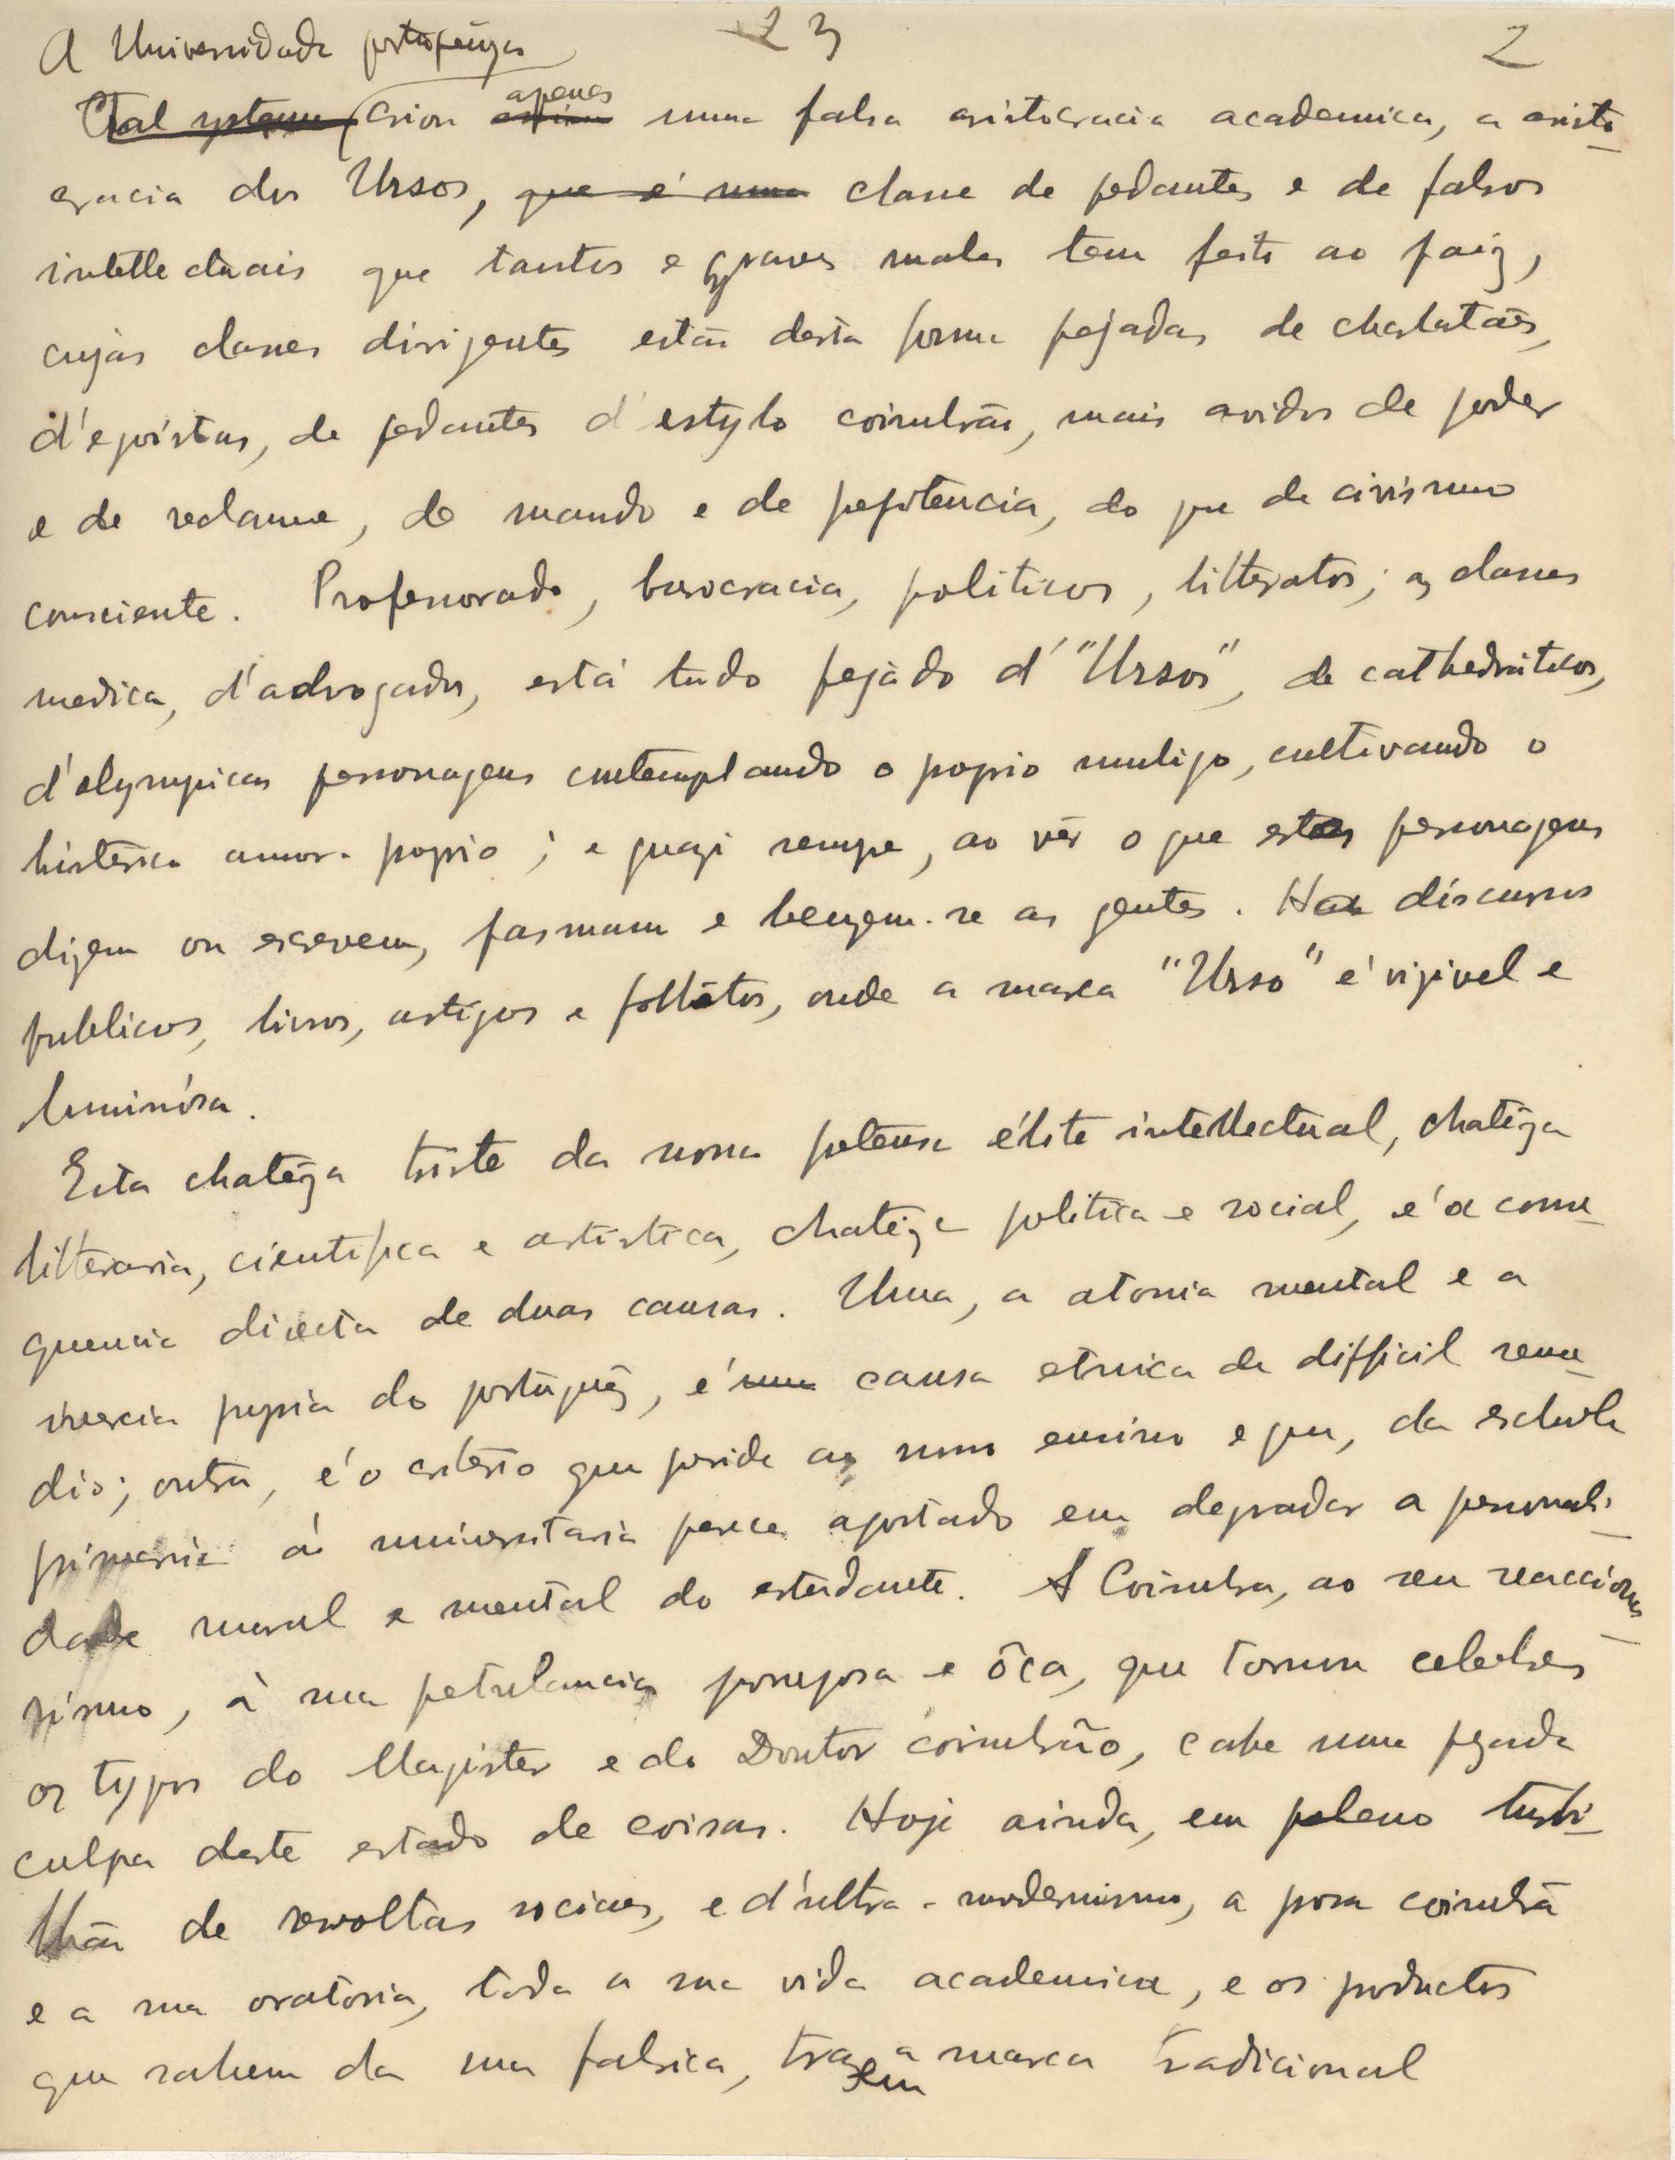 A Universidade portuguêza 23 2
Tal systema criou apenas uma falsa aristocracia academica, a aristo-
cracia dos Ursos, que é uma classe de pedantes e de falsos
intellectuais que tantos e graves males tem feito ao paiz,
cujas classes dirigentes estão desta forma pejadas de charlatães,
d'egoistas, de pedantes d'estylo coimbrão, mais avidos de poder
e de reclame, de mando e de pepitencia, do que de civismo
consciente. Professorado, burocracia, politicos, litteratos; as classes
medica, d'advogados, está tudo pejàdo d'"Ursos", de cathedráticos,
d'olympicas personagens contemplando o proprio umbigo, cultivando o
histérico amor-proprio; e quazi sempre, ao vêr o que estas personagens
dizem ou escrevem, pasmam e benzem-se as gentes. Ha discursos
publicos, livros, artigos e folhêtos, onde a marca "Urso" é vizivel e
luminósa.
Esta chatêza triste da nossa pretensa élite intellectual, chatêza
litteraria, cientifica e artistica, chatêza politica e social, é a conse-
quencia directa de duas causas. Uma, a atonia mental e a
inercia propria do portuguêz, é uma causa etnica de difficil reme-
dio; outra, é o criterio que preside ao nosso ensino e que, da eschola
primaria á universitaria parece apostado em degradar a personali-
dade moral e mental do estudante. A Coimbra, ao seu reacciona-
rismo, à sua petulancia pomposa e ôca, que tornou celebres
os typos do Magister e do Doutor coimbrão, cabe uma pezada
culpa deste estado de coisas. Hoje ainda, em pleno turbi-
lhão de revoltas sociaes, e d'ultra-modernismo, a prosa coimbrã
e a sua oratoria, toda a sua vida academica, e os productos
que sahem da sua fabrica, trazem a marca tradicional